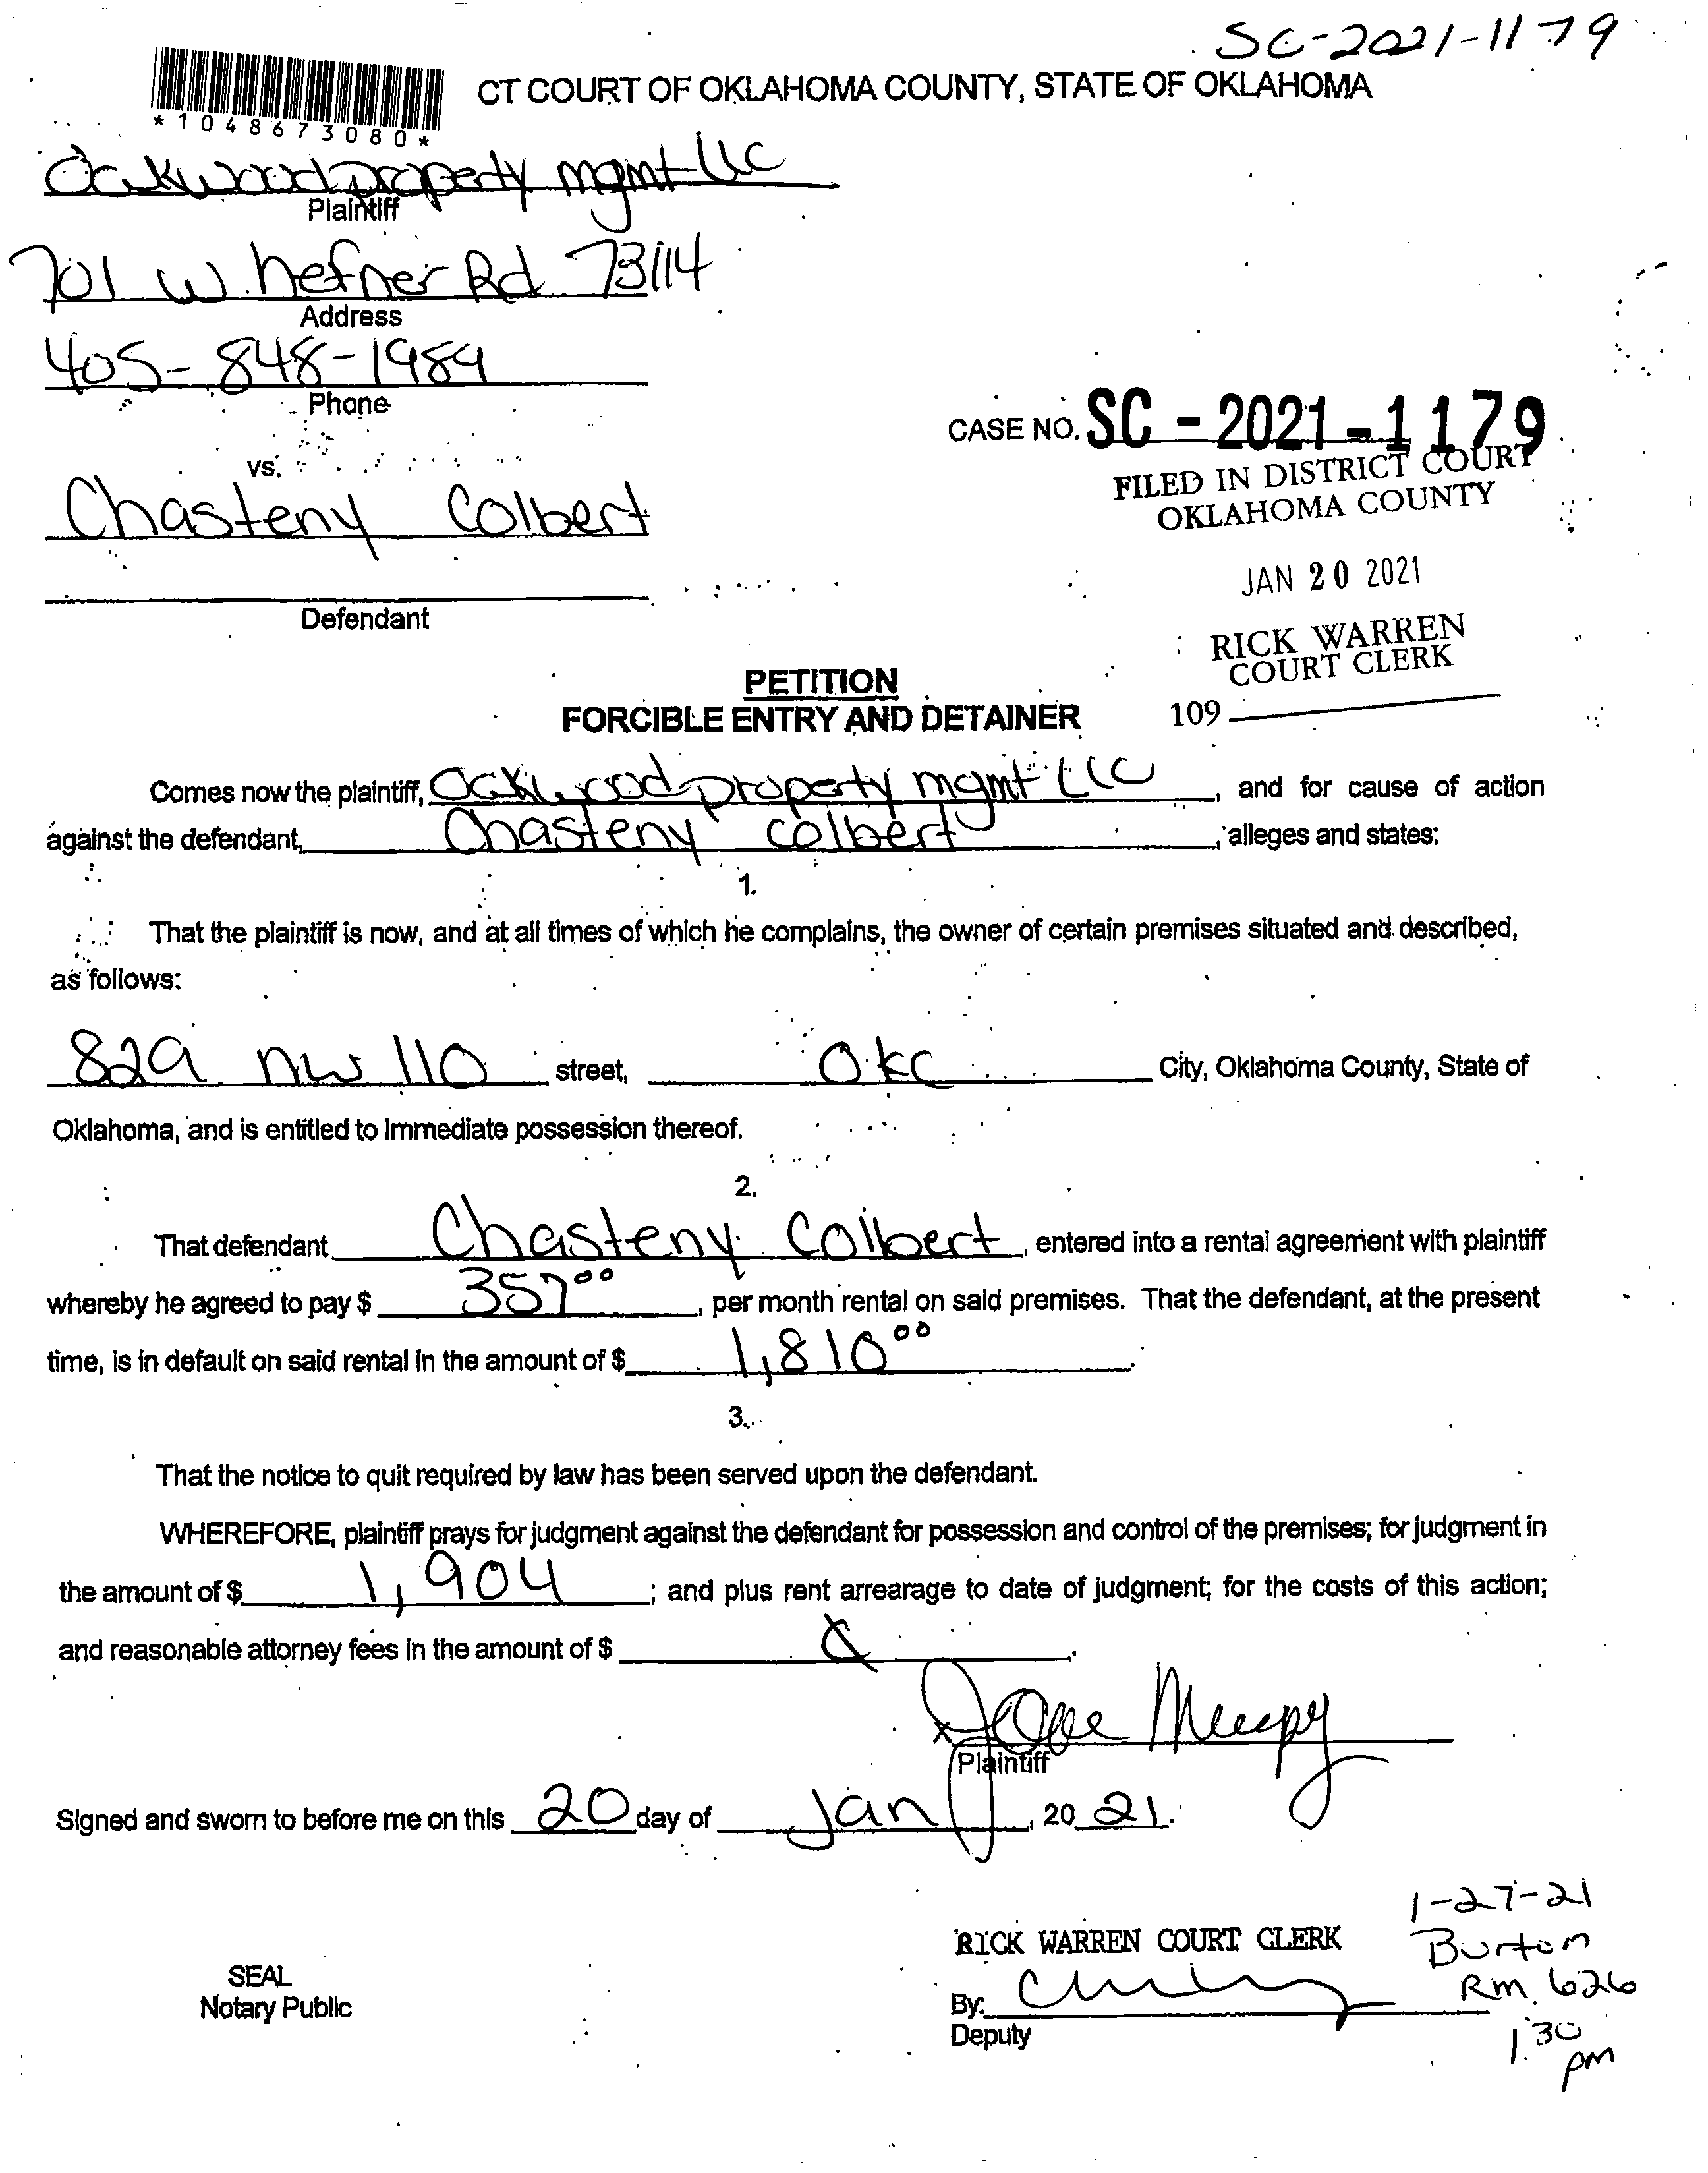 SC-2021-1179
CT COURT OF OKLAHOMA COUNTY, STATE OF OKLAHOMA
*1048673080*
Oakwood property mgmt LLC
Plaintiff
701 W. hefner Rd 73114
Address
405-848-1989
Phone
CASE NO. SC-2021-1179
vs.
FILED IN DISTRICT COURT
OKLAHOMA COUNTY
Chasteny Colbert
JAN 20 2021
Defendant
RICK WARREN
COURT CLERK
PETITION
109
FORCIBLE ENTRY AND DETAINER
Comes now the plaintiff, Oakwood property mgmt LLC, and for cause of action
against the defendant, Chasteny Colbert, alleges and states:
1.
That the plaintiff is now, and at all times of which he complains, the owner of certain premises situated and described,
as follows:
829 NW 110 street, OKC City, Oklahoma County, State of
Oklahoma, and is entitled to immediate possession thereof.
2.
That defendant Chasteny Colbert, entered into a rental agreement with plaintiff
whereby he agreed to pay $ 357 00, per month rental on said premises. That the defendant, at the present
time, is in default on said rental in the amount of $ 1,810 00.
3.
That the notice to quit required by law has been served upon the defendant.
WHEREFORE, plaintiff prays for judgment against the defendant for possession and control of the premises; for judgment in
the amount of $ 1,904; and plus rent arrearage to date of judgment; for the costs of this action;
and reasonable attorney fees in the amount of $
x
Plaintiff
Signed and sworn to before me on this 20 day of Jan, 20 21.
1-27-21
RICK WARREN COURT CLERK
Burton
SEAL
Rm. 626
Notary Public
By:
Deputy
1:30
pm